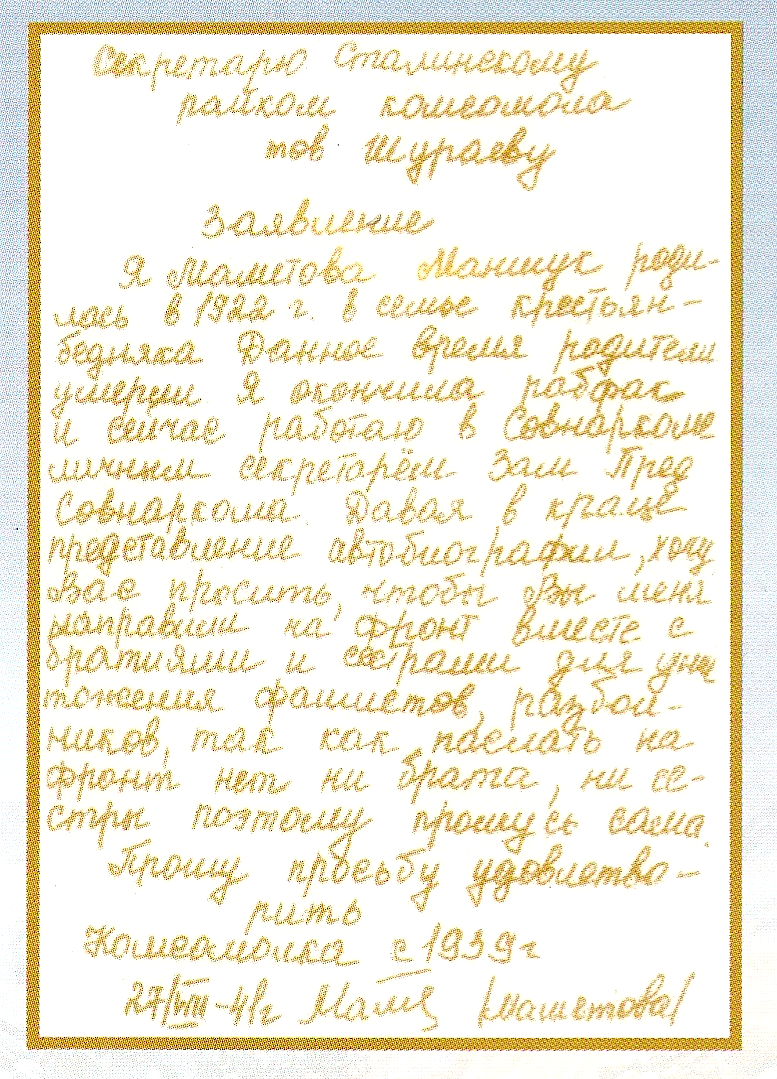 Секретарю Сталинскому
райком комсомола
тов Шураеву
Заявление
Я Маметова Маншук роди-
лась в 1922 г. в семье крестьян-
бедняка Данное время родители
умерли Я окончила рабфак
и сейчас работаю в Совнаркоме
личным секретарём Зам Пред
Совнаркома. Давая в краце
представление автобиографии, хочу
Вас просить, чтобы Вы меня
направили на фронт вместе с
братиями и сестрами для уни
тожения фашистов, разбой-
ников, так как паслать на
фронт нет ни брата, ни се-
стры поэтому прошусь сама.
Прошу просьбу удовлетво-
рить
Комсомолка с 1939 г
27/VIII-41г Маме (Маметова)